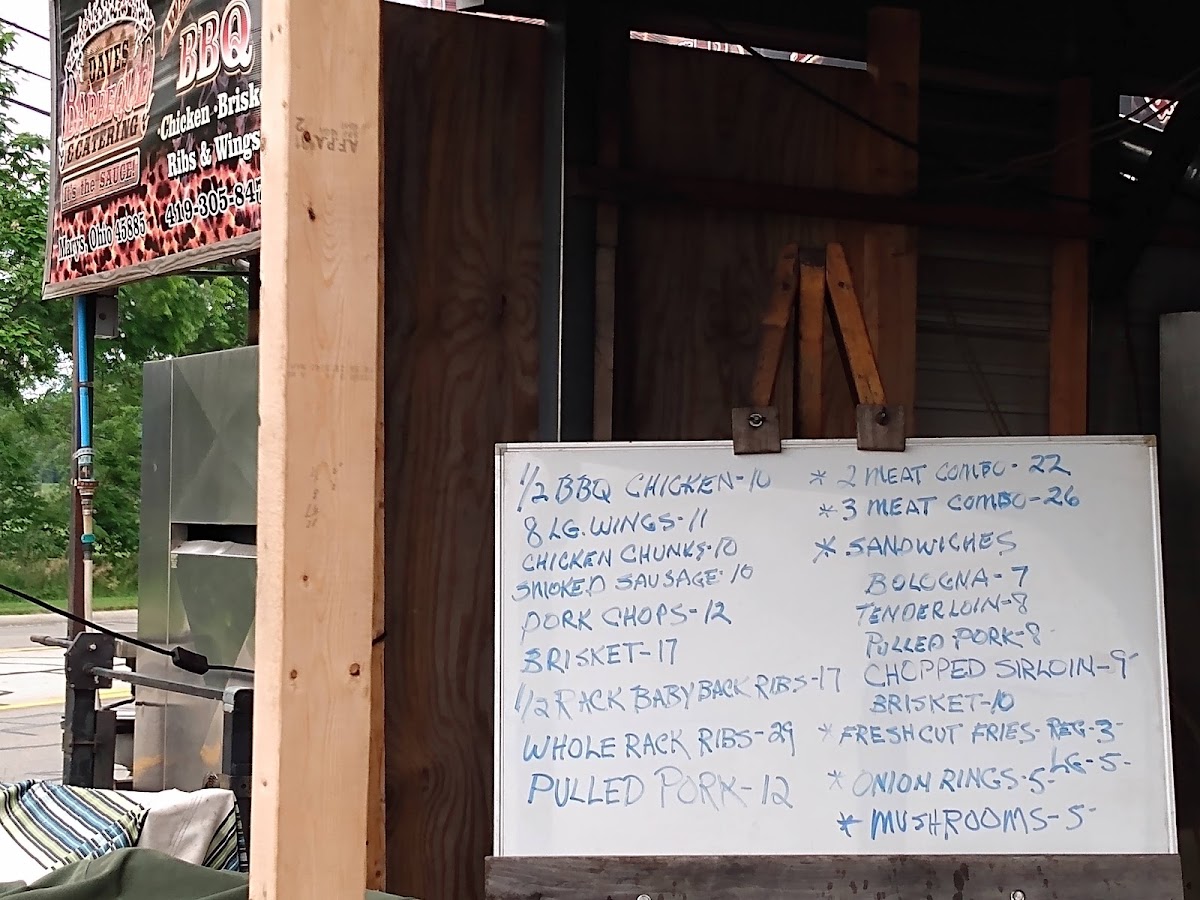 DAVES
BARBEQUE
& CATERING
It's the SAUCE!
BBQ
Chicken · Brisk
Ribs & Wings
419-305-847
Marys, Ohio 45885
1/2 BBQ CHICKEN-10
8 LG. WINGS-11
CHICKEN CHUNKS-10
SMOKED SAUSAGE-10
PORK CHOPS-12
BRISKET-17
1/2 RACK BABY BACK RIBS-17
WHOLE RACK RIBS-29
PULLED PORK-12
* 2 MEAT COMBO-22
* 3 MEAT COMBO-26
* SANDWICHES
BOLOGNA-7
TENDERLOIN-8
PULLED PORK-8
CHOPPED SIRLOIN-9
BRISKET-10
* FRESH CUT FRIES-REG-3
LG-5-
* ONION RINGS-5-
* MUSHROOMS-5-